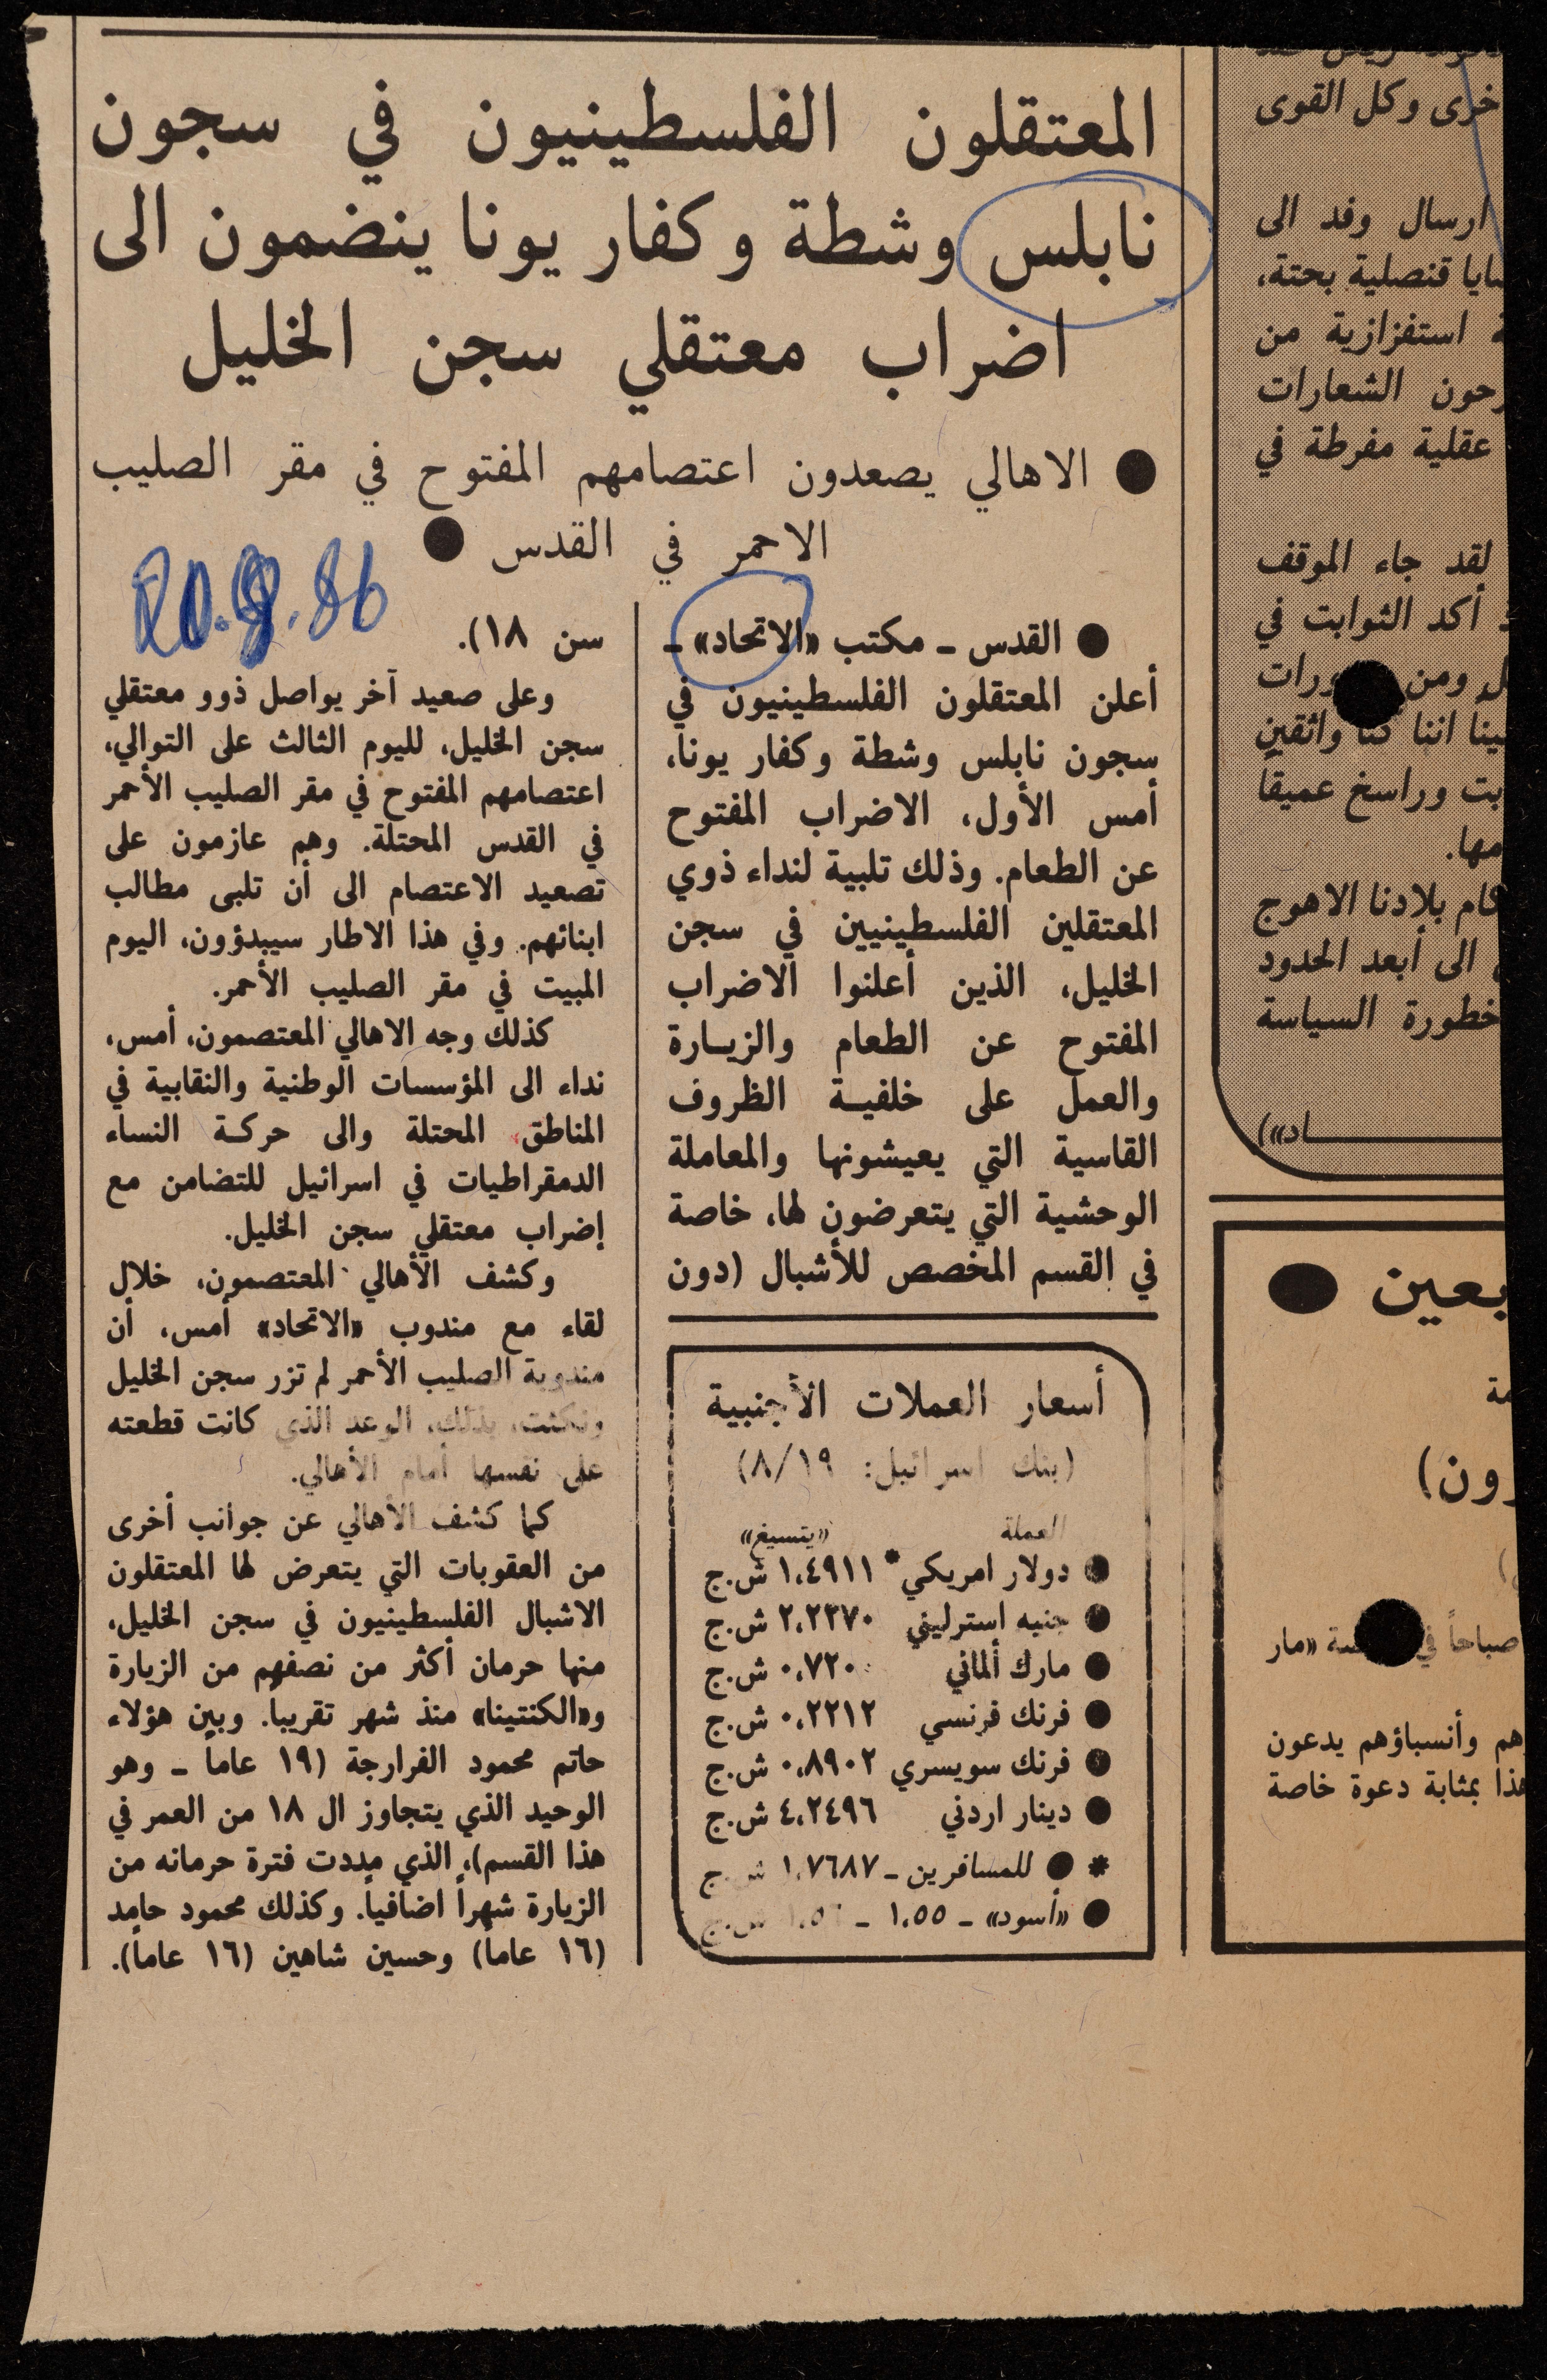 المعتقلون الفلسطينيون في سجون
نابلس وشطة وكفار يونا ينضمون الى
اضراب معتقلي سجن الخليل
● الاهالي يصعدون اعتصامهم المفتوح في مقر الصليب
الاحمر في القدس ●
20.8.86
● القدس ـ مكتب «الاتحاد» ـ
أعلن المعتقلون الفلسطينيون في
سجون نابلس وشطة وكفار يونا،
أمس الأول، الاضراب المفتوح
عن الطعام. وذلك تلبية لنداء ذوي
المعتقلين الفلسطينيين في سجن
الخليل، الذين أعلنوا الاضراب
المفتوح عن الطعام والزيارة
والعمل على خلفية الظروف
القاسية التي يعيشونها والمعاملة
الوحشية التي يتعرضون لها، خاصة
في القسم المخصص للأشبال (دون
سن ١٨).
وعلى صعيد آخر يواصل ذوو معتقلي
سجن الخليل، لليوم الثالث على التوالي،
اعتصامهم المفتوح في مقر الصليب الأحمر
في القدس المحتلة. وهم عازمون على
تصعيد الاعتصام الى أن تلبى مطالب
ابنائهم. وفي هذا الاطار سيبدؤون، اليوم
المبيت في مقر الصليب الأحمر.
كذلك وجه الاهالي المعتصمون، أمس،
نداء الى المؤسسات الوطنية والنقابية في
المناطق المحتلة والى حركة النساء
الدمقراطيات في اسرائيل للتضامن مع
إضراب معتقلي سجن الخليل.
وكشف الأهالي المعتصمون، خلال
لقاء مع مندوب «الاتحاد» أمس، أن
مندوبة الصليب الأحمر لم تزر سجن الخليل
ونكثت، بذلك، الوعد الذي كانت قطعته
على نفسها أمام الأهالي.
كما كشف الأهالي عن جوانب أخرى
من العقوبات التي يتعرض لها المعتقلون
الاشبال الفلسطينيون في سجن الخليل،
منها حرمان أكثر من نصفهم من الزيارة
و«الكنتينا» منذ شهر تقريباً. وبين هؤلاء
حاتم محمود الفرارجة (١٩ عاماً ـ وهو
الوحيد الذي يتجاوز ال ١٨ من العمر في
هذا القسم)، الذي مددت فترة حرمانه من
الزيارة شهراً اضافياً. وكذلك محمود حامد
(١٦ عاماً) وحسين شاهين (١٦ عاماً).
أسعار العملات الأجنبية
(بنك اسرائيل: ٨/١٩)
العملة «يتسيغ»
● دولار امريكي* ١،٤٩١١ ش.ج
● جنيه استرليني ٢،٢٣٧٠ ش.ج
● مارك ألماني ٠،٧٢٠٠ ش.ج
● فرنك فرنسي ٠،٢٢١٢ ش.ج
● فرنك سويسري ٠،٨٩٠٢ ش.ج
● دينار اردني ٤،٢٤٩٦ ش.ج
* ● للمسافرين ـ ١،٧٦٨٧ ش.ج
● «أسود» ـ ١،٥٥ ـ ش.ج
خرى وكل القوى
ارسال وفد الى
قنصلية بحتة،
استفزازية من
الشعارات
عقلية مفرطة في
لقد جاء الموقف
أكد الثوابت في
ومن
اننا كنا واثقين
وراسخ عميقا
بلادنا الاهوج
الى أبعد الحدود
خطورة السياسة
●
صباحاً في «مار
وأنسباؤهم يدعون
بمثابة دعوة خاصة